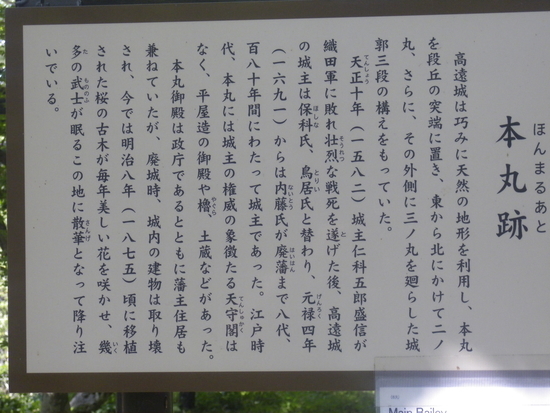 ほんまるあと
本丸跡
高遠城は巧みに天然の地形を利用し、本丸
を段丘の突端に置き、東から北にかけて二ノ
丸、さらに、その外側に三ノ丸を廻らした城
郭三段の構えをもっていた。
天正十年（一五八二）城主仁科五郎盛信が
織田軍に敗れ壮烈な戦死を遂げた後、高遠城
の城主は保科氏、鳥居氏と替わり、元禄四年
（一六九一）からは内藤氏が廃藩まで八代、
百八十年間にわたって城主であった。江戸時
代、本丸には城主の権威の象徴たる天守閣は
なく、平屋造の御殿や櫓、土蔵などがあった。
本丸御殿は政庁であるとともに藩主住居も
兼ねていたが、廃城時、城内の建物は取り壊
され、今では明治八年（一八七五）頃に移植
された桜の古木が毎年美しい花を咲かせ、幾
多の武士が眠るこの地に散華となって降り注
いでいる。
Main Bailey